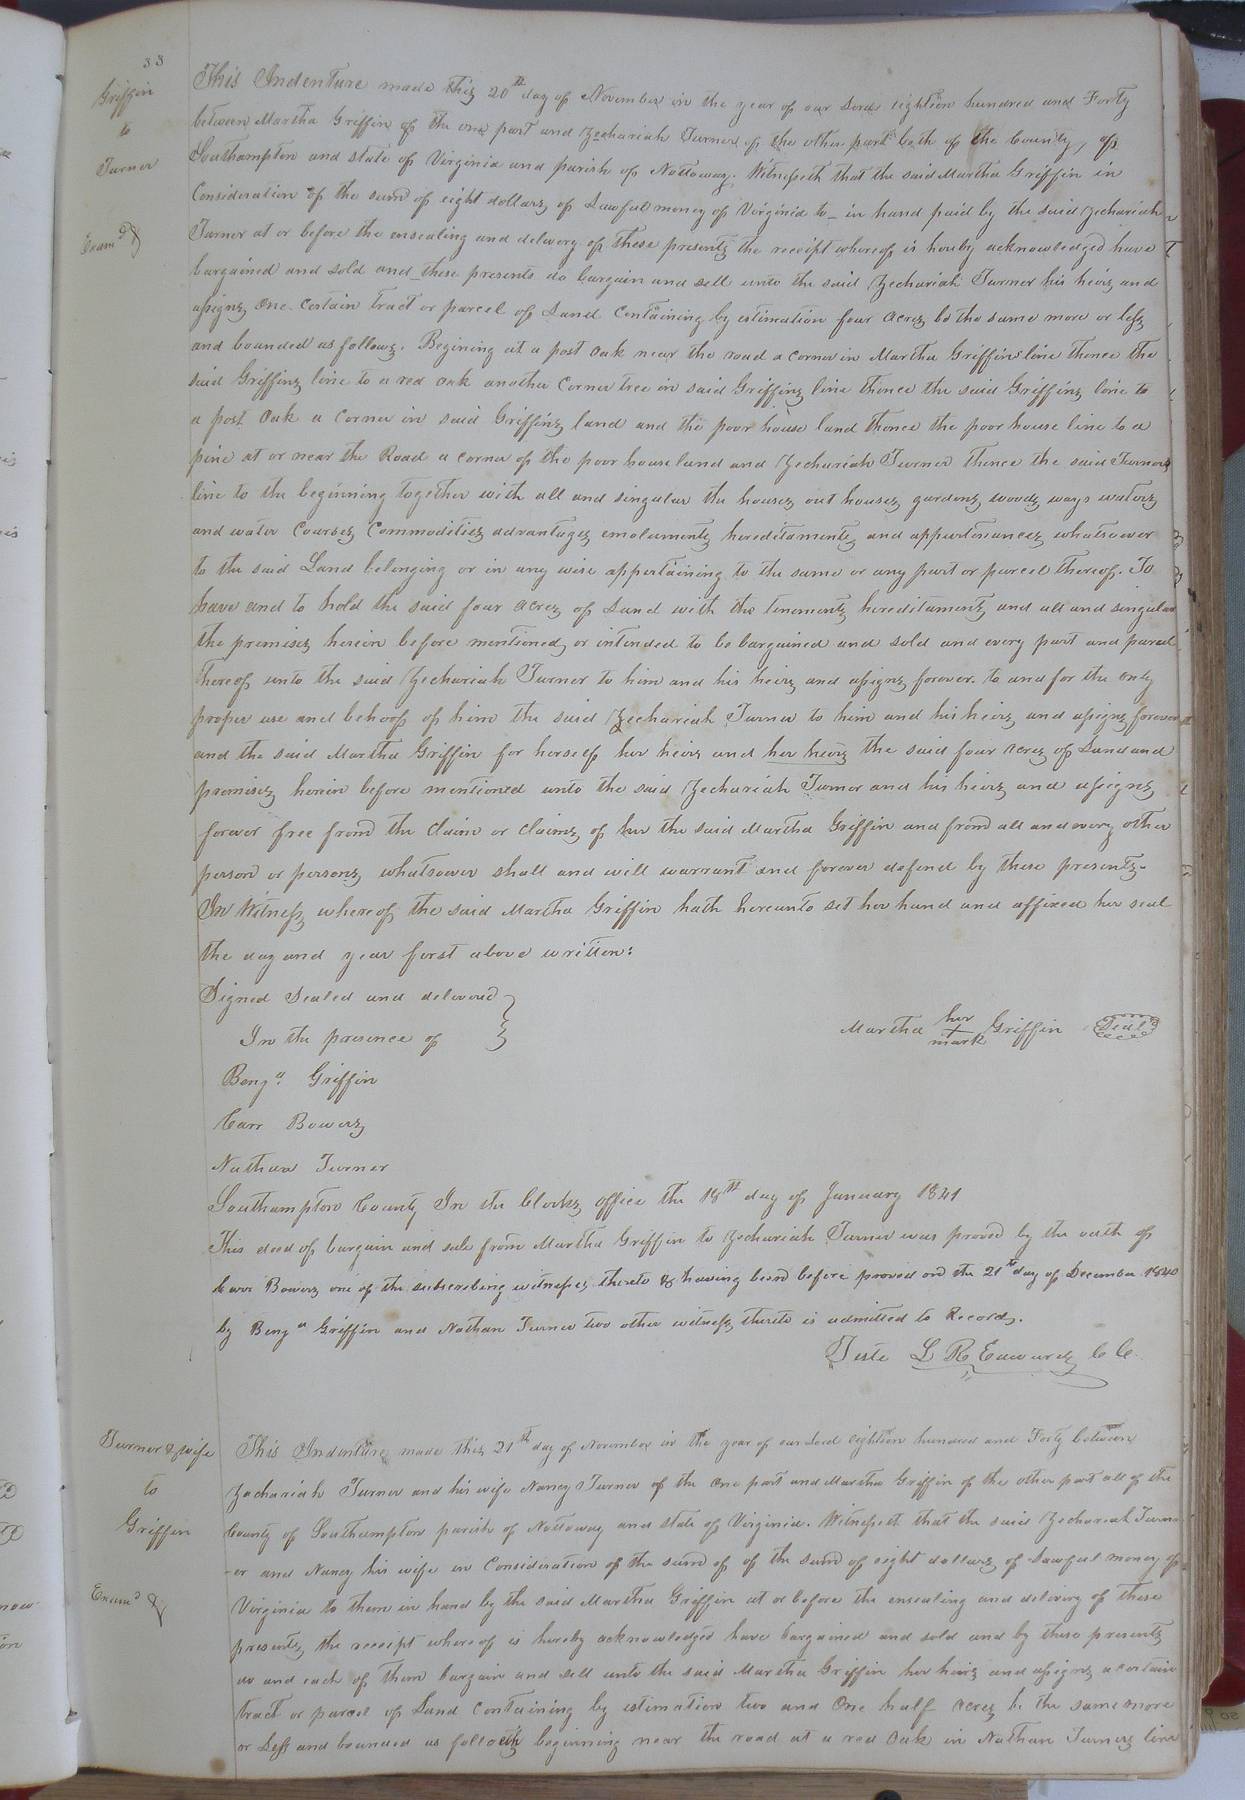 33
Griffin
to
Turner
Exam.d &
This Indenture made this 20th day of November in the year of our Lord eighteen hundred and Forty
between Martha Griffin of the one part and Zechariah Turner of the other part both of the County of
Southampton and state of Virginia and parish of Nottoway. Witnesseth that the said Martha Griffin in
Consideration of the sum of eight dollars of Lawful money of Virginia to _ in hand paid by the said Zechariah
Turner at or before the ensealing and delivery of these presents the receipt whereof is hereby acknowledged have
bargained and sold and _ these presents do bargain and sell unto the said Zechariah Turner his heirs and
assigns One Certain tract or parcel of Land Containing by estimation four Acres be the same more or less
and bounded as follows. Begining at a post oak near the road a corner in Martha Griffins line thence the
said Griffins line to a red oak another Corner tree in said Griffins line thence the said Griffins line to
a post Oak a Corner in said Griffins land and the poor house land thence the poor house line to a
pine at or near the Road a corner of the poor house land and Zechariah Turner Thence the said Turners
line to the beginning together with all and singular the houses out houses gardens woods ways waters
and water Courses Commodities advantages emoluments hereditaments and appurtinances whatsoever
to the said Land belonging or in any wise appertaining to the same or any part or parcel thereof. To
have and to hold the said four acres of Land with the tenements hereditaments and all and singular
the premises herein before mentioned or intended to be bargained and sold and every part and parcel
thereof unto the said Zechariah Turner to him and his heirs and assigns forever. to and for the only
proper use and behoof of him the said Zechariah Turner to him and his heirs and assigns forever
and the said Martha Griffin for herself her heirs and her heirs the said four acres of Land and
premises herein before mentioned unto the said Zechariah Turner and his heirs and assigns
forever free from the Claim or claims of her the said Martha Griffin and from all and every other
person or persons whatsoever shall and will warrant and forever defend by these presents.
In Witness whereof the said Martha Griffin hath hereunto set her hand and affixed her seal
the day and year first above written:
Signed Sealed and delivered
In the presence of
Martha her + mark Griffin Seal
Benja. Griffin
Carr Bowers
Nathan Turner
Southampton County In the Clerks office the 18th day of January 1841
This deed of bargain and sale from Martha Griffin to Zechariah Turner was proved by the oath of
Carr Bowers one of the subscribing witnesses thereto & having been before proved on the 21st day of December 1840
by Benja Griffin and Nathan Turner two other witness thereto is admitted to Record.
Teste L R Edwards C C.
Turner & wife
to
Griffin
Exam.d &
This Indenture made this 21st day of November in the year of our Lord eighteen hundred and Forty between
Zachariah Turner and his wife Nancy Turner of the One part and Martha Griffin of the other part all of the
County of Southampton parish of Nottoway and state of Virginia. Witnesseth that the said Zechariah Turn
-er and Nancy his wife in Consideration of the sum of of the sum of eight dollars of Lawful money of
Virginia to them in hand by the said Martha Griffin at or before the ensealing and delivery of these
presents, the receipt whereof is hereby acknowledged have bargained and sold and by these presents
do and each of them bargain and sell unto the said Martha Griffin her heirs and assigns a certain
tract or parcel of Land Containing by estimation two and One half acres be the same more
or Less and bounded as followth beginning near the road at a red Oak in Nathan Turners line